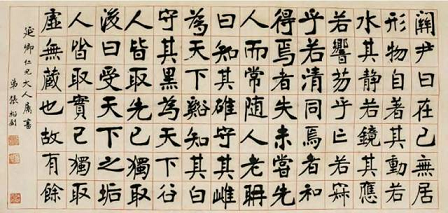 關尹曰在己無居
形物自著其動若
水其静若鏡其應
若響芴乎若亡寂
乎若清同焉者和
得焉者失未嘗先
人而常随人老聃
曰知其雄守其雌
為天下谿知其白
守其黑為天下谷
人皆取先己獨取
後曰受天下之垢
人皆取實己獨取
虛無藏也故有餘
延卿仁兄大人屬書
弟張裕釗